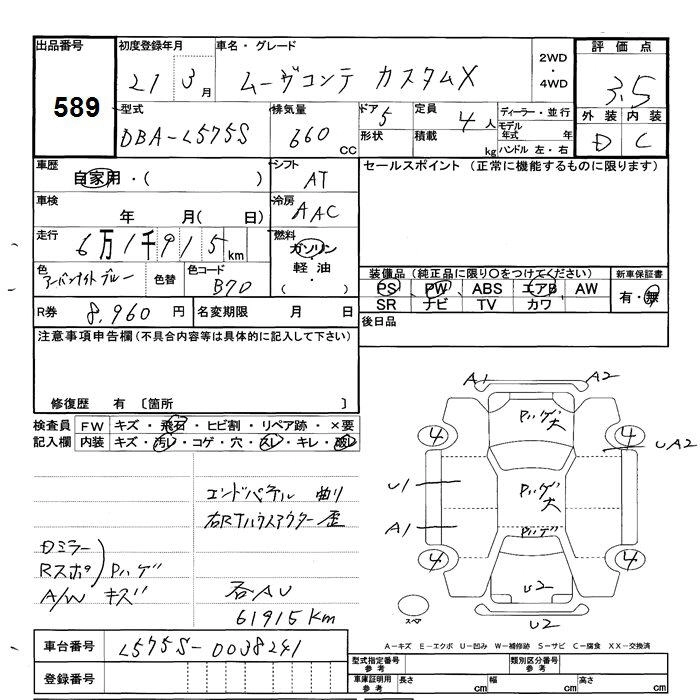 出品番号 初度登録年月 車名・グレード 2WD・4WD 評価点
589 21 3月 ムーヴコンテ カスタムX 3.5
型式 排気量 ドア 5 定員 4人 ディーラー・並行 外装 内装
DBA-L575S 660 CC 形状 積載 kg モデル年式 年 ハンドル 左・右 D C
車歴 自家用・( ) シフト AT セールスポイント (正常に機能するものに限ります)
車検 年 月( 日) 冷房 AAC
走行 6万1千915km 燃料 ガソリン・軽油・( )
色 アーバンナイトブルー 色替 色コード B70
装備品 (純正品に限り○をつけてください) 新車保証書
PS PW ABS エアB AW 有・無
SR ナビ TV カワ
R券 8,960円 名変期限 月 日 後日品
注意事項申告欄 (不具合内容等は具体的に記入して下さい)
修復歴 有 〔箇所 〕
検査員 FW キズ・飛石・ヒビ割・リペア跡・×要
記入欄 内装 キズ・汚レ・コゲ・穴・スレ・キレ・破レ
A1 A2
Pハゲ大
4 4 UA2
エンドパネル 曲り
右RTハウスアウター 歪
U1 Pハゲ大
A1 Pハゲ
Dミラー
Rスポ Pハゲ
A/W キズ
4 4
各AU
61915Km
U2
スペア U2
車台番号 L575S-0038241
A-キズ E-エクボ U-凹み W-補修跡 S-サビ C-腐食 XX-交換済
登録番号
型式指定番号 参考 類別区分番号 参考
車庫証明用 参考 長さ cm 幅 cm 高さ cm